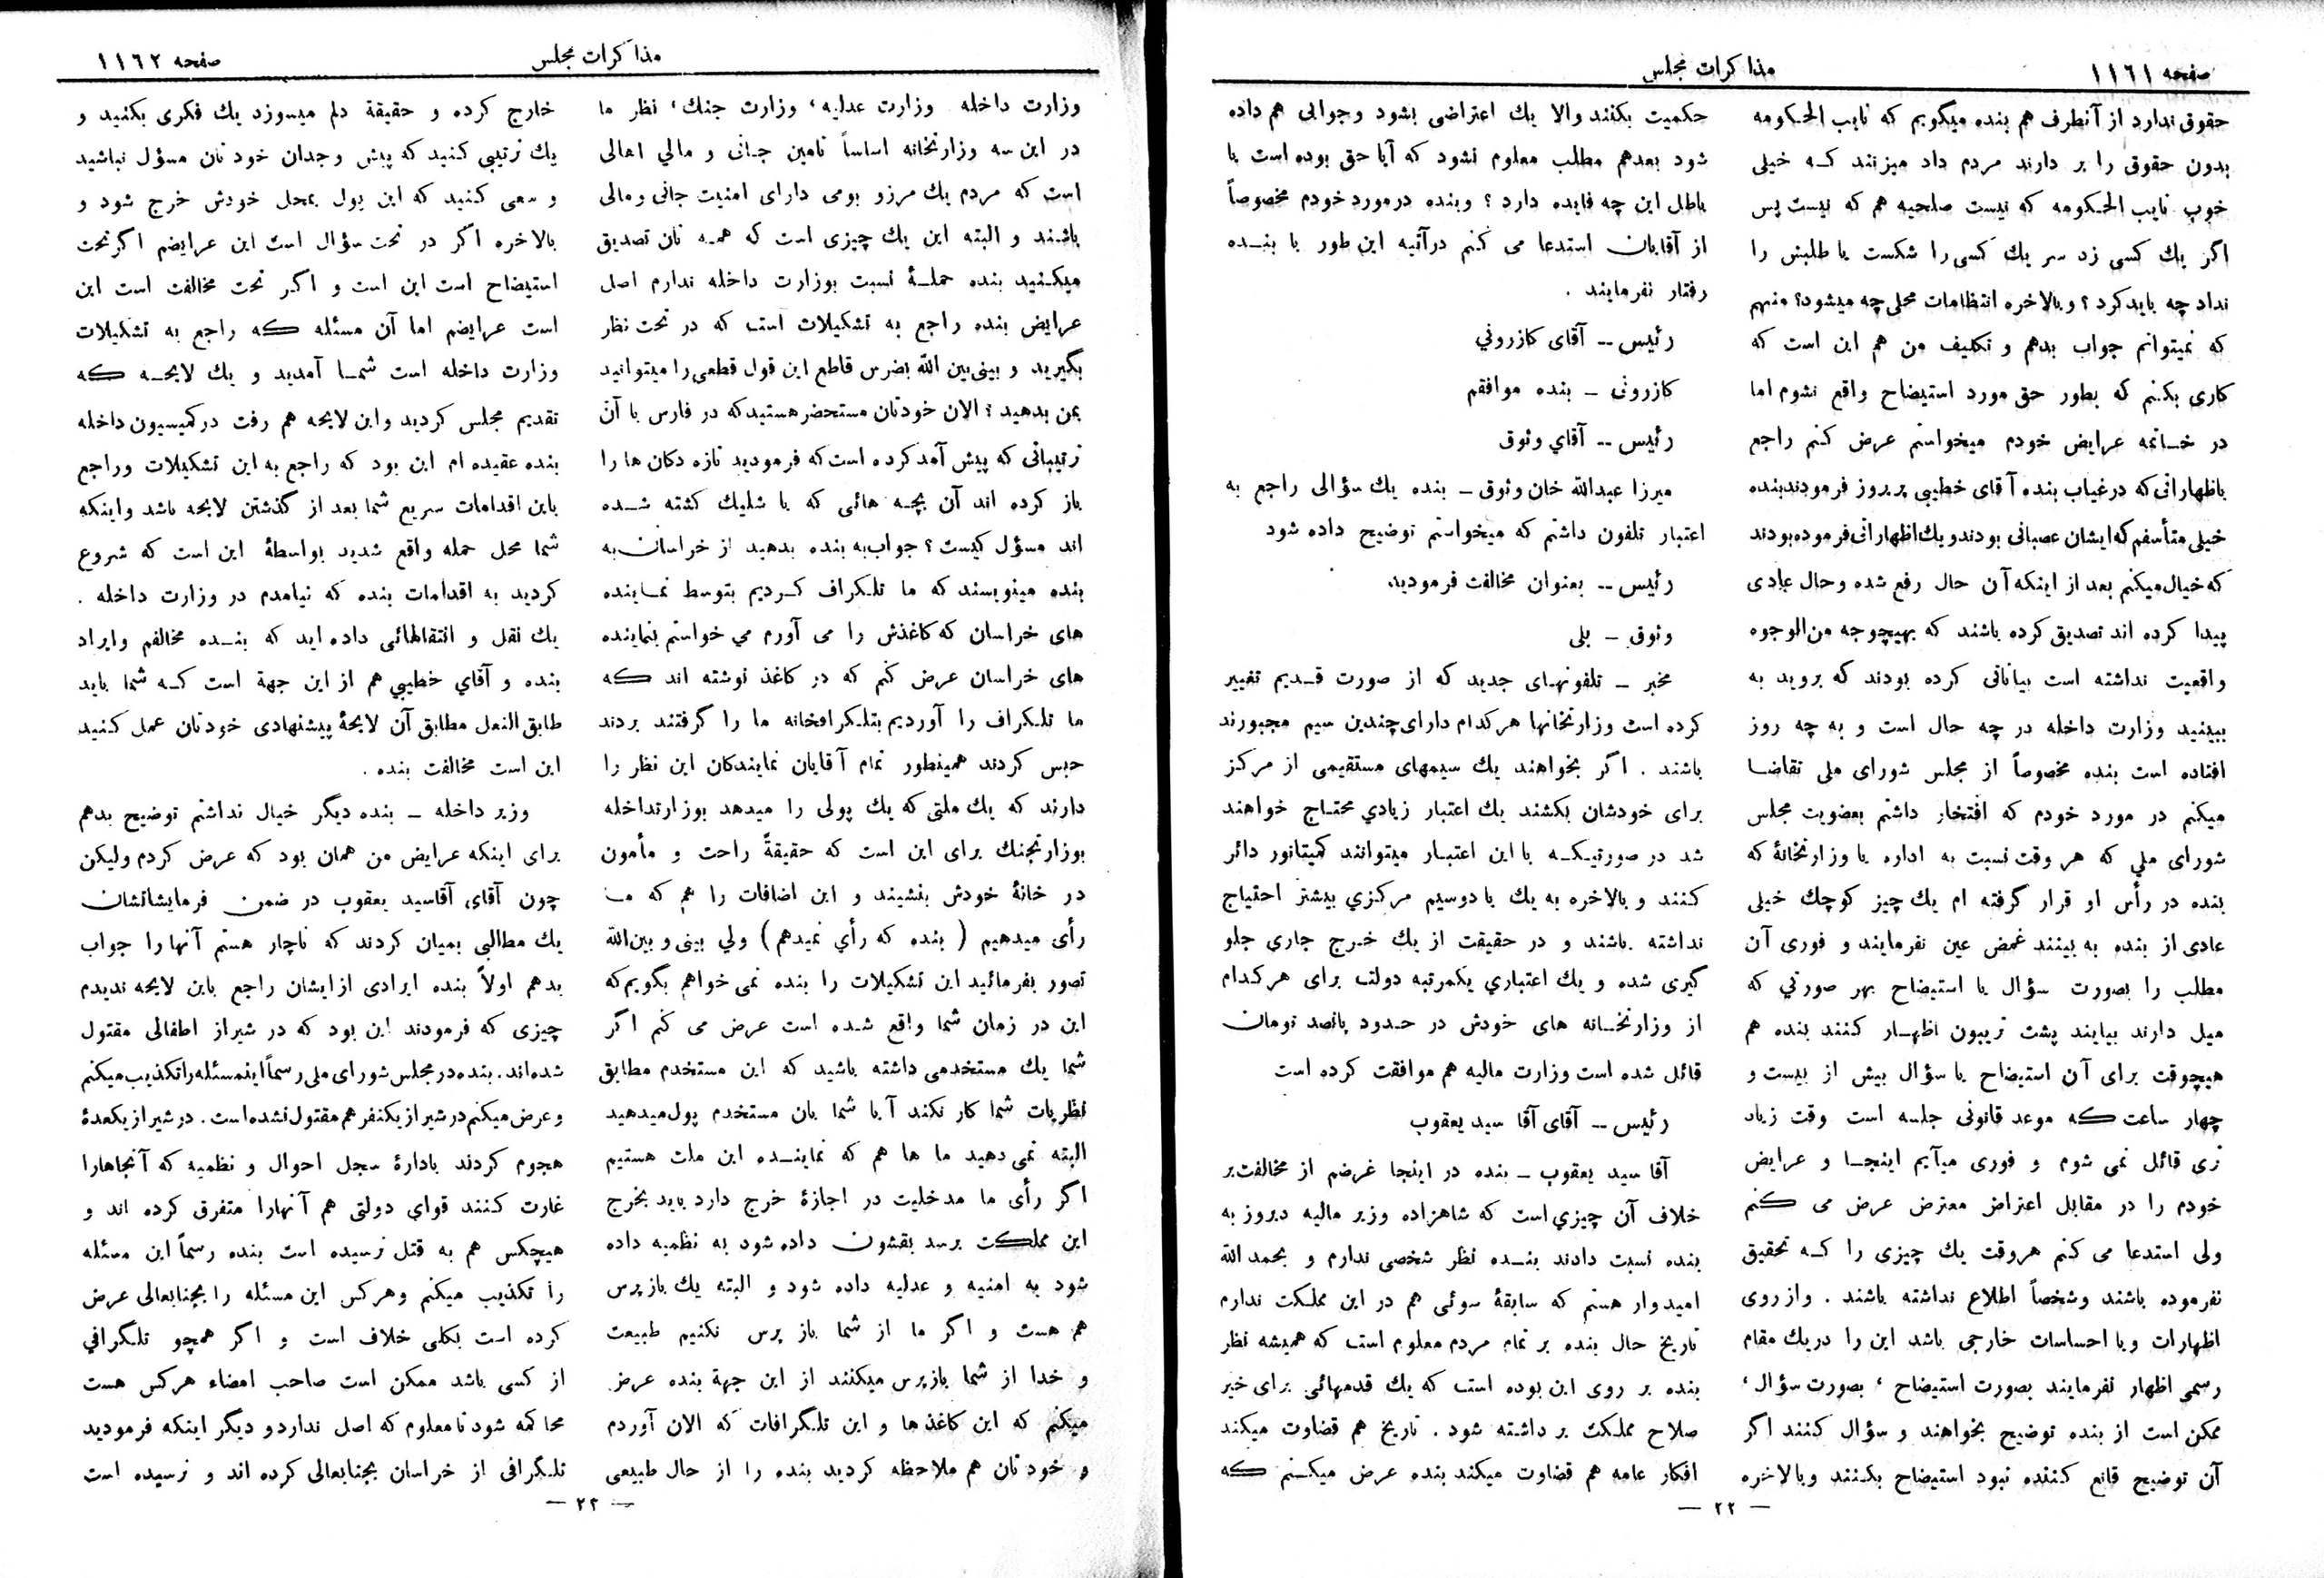 صفحه ۱۱٦۱
مذاکرات مجلس
حقوق ندارد از آنطرف هم بنده میگویم که نایب الحکومه
بدون حقوق را بر دارند مردم داد میزنند که خیلی
خوب نایب الحکومه که نیست صلحیه هم که نیست پس
اگر یك کسی زد سر یك کسی را شکست یا طلبش را
نداد چه باید کرد ؟ و بالاخره انتظامات محلی چه میشود؟ منهم
که نمیتوانم جواب بدهم و تکلیف من هم این است که
کاری بکنم که بطور حق مورد استیضاح واقع نشوم اما
در خاتمه عرایض خودم میخواستم عرض کنم راجع
باظهاراتی که در غیاب بنده آقای خطیبی پریروز فرمودند بنده
خیلی متأسفم که ایشان عصبانی بودند و یك اظهاراتی فرموده بودند
که خیال میکنم بعد از اینکه آن حال رفع شده و حال عادی
پیدا کرده اند تصدیق کرده باشند که بهیچوجه من الوجوه
واقعیت نداشته است بیاناتی کرده بودند که بروید به
ببینید وزارت داخله در چه حال است و به چه روز
افتاده است بنده مخصوصاً از مجلس شورای ملی تقاضا
میکنم در مورد خودم که افتخار داشتم بعضویت مجلس
شورای ملی که هر وقت نسبت به اداره یا وزارتخانهٔ که
بنده در رأس او قرار گرفته ام یك چیز کوچك خیلی
عادی از بنده به بینند غمض عین نفرمایند و فوری آن
مطلب را بصورت سؤال یا استیضاح بهر صورتی که
میل دارند بیایند پشت تریبون اظهار کنند بنده هم
هیچوقت برای آن استیضاح یا سؤال بیش از بیست و
چهار ساعت که موعد قانونی جلسه است وقت زیاد
تری قائل نمی شوم و فوری میآیم اینجا و عرایض
خودم را در مقابل اعتراض معترض عرض می کنم
ولی استدعا می کنم هروقت یك چیزی را که تحقیق
نفرموده باشند وشخصاً اطلاع نداشته باشند . واز روی
اظهارات ویا احساسات خارجی باشد این را دریك مقام
رسمی اظهار نفرمایند بصورت استیضاح ، بصورت سؤال ،
ممکن است از بنده توضیح بخواهند و سؤال کنند اگر
آن توضیح قانع کننده نبود استیضاح بکنند وبالاخره
حکمیت بکنند والا یك اعتراضی بشود وجوابی هم داده
شود بعدهم مطلب معلوم نشود که آیا حق بوده است یا
باطل این چه فایده دارد ؟ وبنده درمورد خودم مخصوصاً
از آقایان استدعا می کنم درآتیه این طور با بنده
رفتار نفرمایند .
رئیس -- آقای کازرونی
کازرونی - بنده موافقم
رئیس -- آقای وثوق
میرزا عبدالله خان وثوق - بنده یك سؤالی راجع به
اعتبار تلفون داشتم که میخواستم توضیح داده شود
رئیس -- بعنوان مخالفت فرمودید.
وثوق - بلی
مخبر - تلفونهای جدید که از صورت قدیم تغییر
کرده است وزارتخانها هرکدام دارای چندین سیم مجبورند
باشند . اگر بخواهند یك سیمهای مستقیمی از مرکز
برای خودشان بکشند یك اعتبار زیادی محتاج خواهند
شد در صورتیکه با این اعتبار میتوانند کمیتانور دائر
کنند و بالاخره به یك یا دوسیم مرکزی بیشتر احتیاج
نداشته باشند و در حقیقت از یك خرج جاری جلو
گیری شده و یك اعتباری یکمرتبه دولت برای هرکدام
از وزارتخانه های خودش در حدود پانصد تومان
قائل شده است وزارت مالیه هم موافقت کرده است
رئیس -- آقای آقا سید یعقوب
آقا سید یعقوب - بنده در اینجا غرضم از مخالفت بر
خلاف آن چیزی است که شاهزاده وزیر مالیه دیروز به
بنده نسبت دادند بنده نظر شخصی ندارم و بحمد الله
امیدوار هستم که سابقهٔ سوئی هم در این مملکت ندارم
تاریخ حال بنده بر تمام مردم معلوم است که همیشه نظر
بنده بر روی این بوده است که یك قدمهائی برای خیر
صلاح مملکت بر داشته شود . تاریخ هم قضاوت میکند
افکار عامه هم قضاوت میکند بنده عرض میکنم که
— ۲۲ —
صفحه ۱۱٦۲
مذاکرات مجلس
وزارت داخله وزارت عدلیه، وزارت جنك ، نظر ما
در این سه وزارتخانه اساساً تامین جانی و مالی اهالی
است که مردم یك مرزو بومی دارای امنیت جانی ومالی
باشند و البته این یك چیزی است که همه تان تصدیق
میکنید بنده حملهٔ نسبت بوزارت داخله ندارم اصل
عرایض بنده راجع به تشکیلات است که در تحت نظر
بگیرید و بینی بین الله بضرس قاطع این قول قطعی را میتوانید
بمن بدهید ؟ الان خودتان مستحضر هستید که در فارس با آن
ترتیباتی که پیش آمد کرده است که فرمودید تازه دکان ها را
باز کرده اند آن بچه هائی که با شلیك کشته شده
اند مسؤل کیست ؟ جواب به بنده بدهید از خراسان به
بنده مینویسند که ما تلگراف کردیم بتوسط نماینده
های خراسان که کاغذش را می آورم می خواستم بنماینده
های خراسان عرض کنم که در کاغذ نوشته اند که
ما تلگراف را آوردیم بتلگرافخانه ما را گرفتند بردند
حبس کردند همینطور تمام آقایان نمایندگان این نظر را
دارند که یك ملتی که یك پولی را میدهد بوزارتداخله
بوزارتجنك برای این است که حقیقةً راحت و مأمون
در خانهٔ خودش بنشیند و این اضافات را هم که ما
رأی میدهیم ( بنده که رأی نمیدهم ) ولی بینی و بین الله
تصور بفرمائید این تشکیلات را بنده نمی خواهم بگویم که
این در زمان شما واقع شده است عرض می کنم اگر
شما یك مستخدمی داشته باشید که این مستخدم مطابق
نظریات شما کار نکند آیا شما بان مستخدم پول میدهید
البته نمی دهید ما ها هم که نماینده این ملت هستیم
اگر رأی ما مدخلیت در اجازهٔ خرج دارد باید بخرج
این مملکت برسد بقشون داده شود به نظمیه داده
شود به امنیه و عدلیه داده شود و البته یك بازپرس
هم هست و اگر ما از شما باز پرس نکنیم طبیعت
و خدا از شما بازپرس میکنند از این جهة بنده عرض
میکنم که این کاغذ ها و این تلگرافات که الان آوردم
و خودتان هم ملاحظه کردید بنده را از حال طبیعی
خارج کرده و حقیقة دلم میسوزد یك فکری بکنید و
یك ترتیبی کنید که پیش وجدان خودتان مسؤل نباشید
و سعی کنید که این پول بمحل خودش خرج شود و
بالاخره اگر در تحت سؤال است این عرایضم اگر تحت
استیضاح است این است و اگر تحت مخالفت است این
است عرایضم اما آن مسئله که راجع به تشکیلات
وزارت داخله است شما آمدید و یك لایحه که
تقدیم مجلس کردید واین لایحه هم رفت در کمیسیون داخله
بنده عقیده ام این بود که راجع به این تشکیلات وراجع
باین اقدامات سریع شما بعد از گذشتن لایحه باشد واینکه
شما محل حمله واقع شدید بواسطهٔ این است که شروع
کردید به اقدامات بنده که نیامدم در وزارت داخله .
یك نقل و انتقالهائی داده اید که بنده مخالفم وایراد
بنده و آقای خطیبی هم از این جهة است که شما باید
طابق النعل مطابق آن لایحهٔ پیشنهادی خودتان عمل کنید
این است مخالفت بنده .
وزیر داخله - بنده دیگر خیال نداشتم توضیح بدهم
برای اینکه عرایض من همان بود که عرض کردم ولیکن
چون آقای آقاسید یعقوب در ضمن فرمایشاتشان
یك مطالبی بمیان کردند که ناچار هستم آنها را جواب
بدهم اولاً بنده ایرادی از ایشان راجع باین لایحه ندیدم
چیزی که فرمودند این بود که در شیراز اطفالی مقتول
شده اند . بنده در مجلس شورای ملی رسماً اینمسئله را تکذیب میکنم
و عرض میکنم در شیراز یکنفر هم مقتول نشده است . در شیراز یکعدهٔ
هجوم کردند بادارهٔ سجل احوال و نظمیه که آنجاهارا
غارت کنند قوای دولتی هم آنهارا متفرق کرده اند و
هیچکس هم به قتل نرسیده است بنده رسماً این مسئله
را تکذیب میکنم وهرکس این مسئله را بجنابعالی عرض
کرده است بکلی خلاف است و اگر همچو تلگرافی
از کسی باشد ممکن است صاحب امضاء هرکس هست
محاکمه شود تا معلوم که اصل ندارد و دیگر اینکه فرمودید
تلگرافی از خراسان بجنابعالی کرده اند و نرسیده است
— ۲۲ —